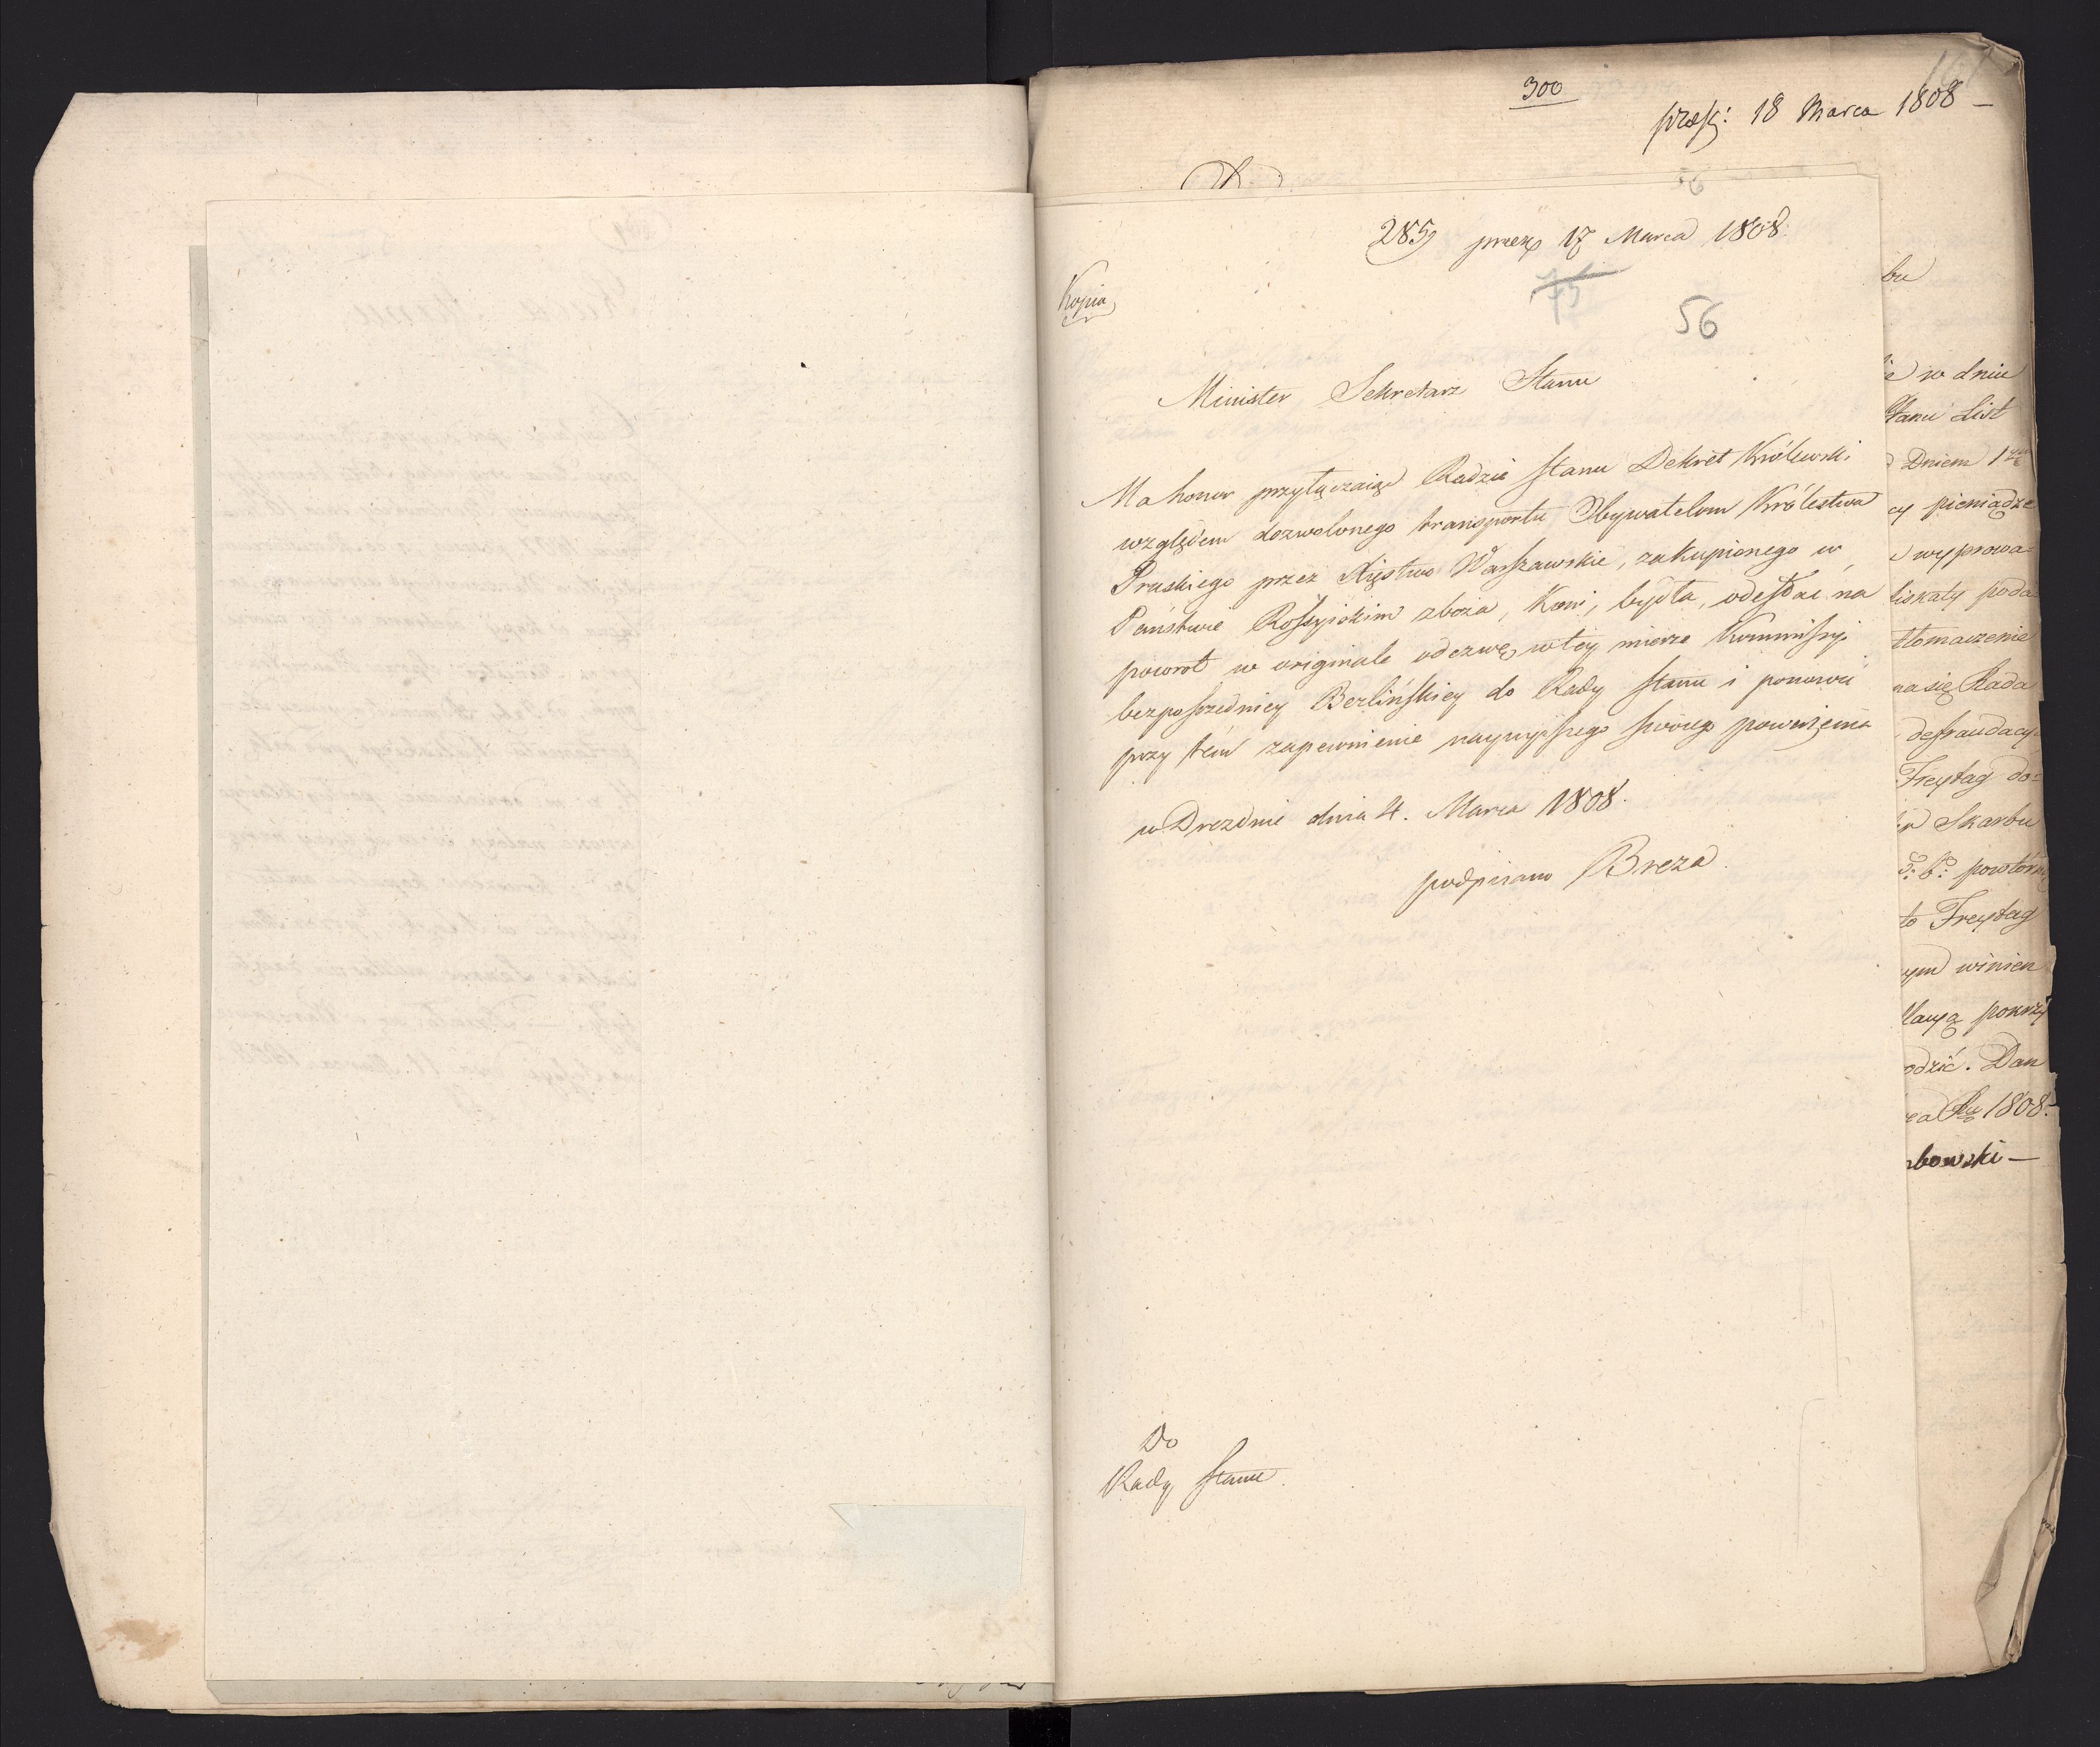 300
præs: 18 Marca 1808 —
56
285 præs 17 Marca 1808
Kopia
75
56
Minister Sekretarz Stanu
Ma honor przyłączaiąc Radzie Stanu Dekret Królewski
względem dozwolonego transportu Obywatelom Królestwa
Pruskiego przez Xięstwo Warszawskie, zakupionego w
Państwie Rossyiskim zboża, Koni, bydła, odesłać na
powrot w originale odezwę w tey mierze Kommissyi
bezpośredniey Berlińskiey do Rady Stanu i ponowić
przy tém zapewnienie naywyższego swoiego poważenia
w Dreznie dnia 4. Marca 1808.
podpisano Breza.
Do
Rady Stanu.
bu
w dniu
Stanu List
Dniem 1
cy pieniądze
wyprowa=
tiskaty poda=
tłomaczenie
na się Rada
defraudacy
Freytag do=
Skarbu
powtórn
to Freytag
ym winien
pokrzy
odzić. Dan
1808.
bowski —